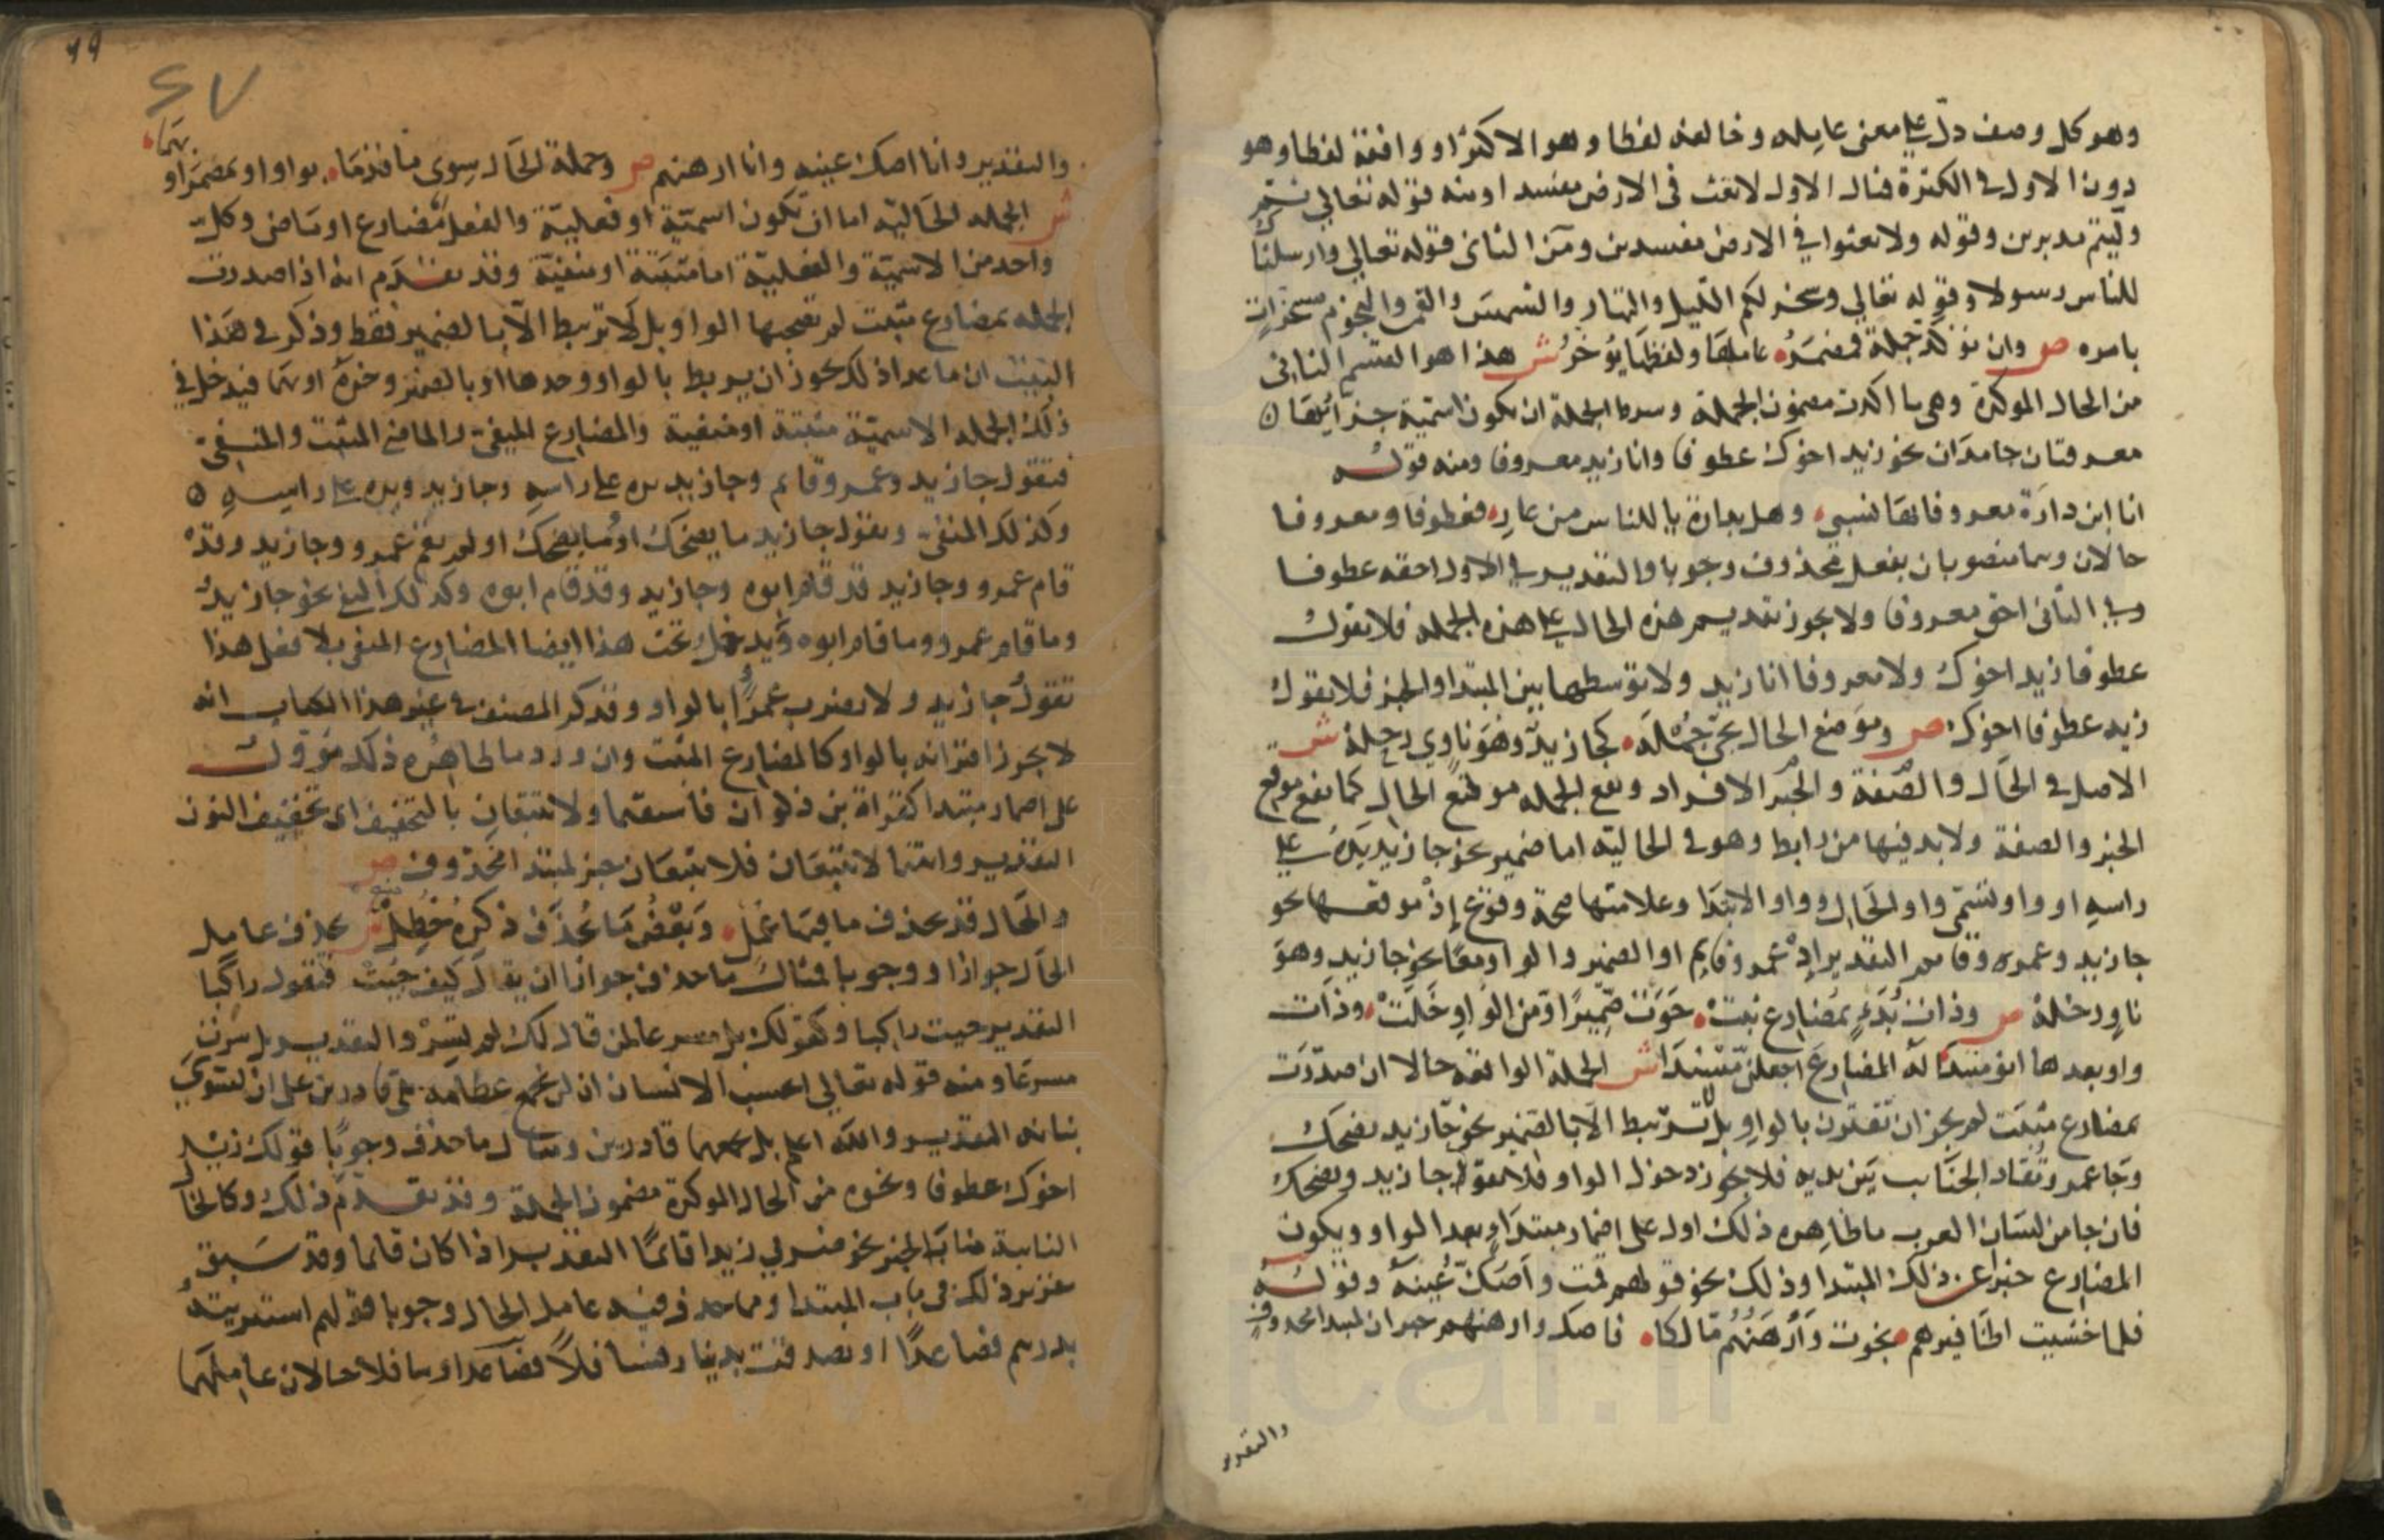 وهو كل وصف دل علي معنى عامله وخالفه لفظا وهو الاكثر او وافقه لفظا وهو
دون الاول في الكثرة فمثال الاول لاتعث في الارض مفسدا ومنه قوله تعالي ثم
وليتم مدبرين وقوله ولا تعثوا في الارض مفسدين ومن الثاني قوله تعالي وارسلناك
للناس رسولا وقوله تعالي وسخر لكم الليل والنهار والشمس والقمر والنجوم مسخرات
بامره ص وان تؤكد جملة فمضمر عاملها ولفظها يؤخر ش هذا هو القسم الثاني
من الحال المؤكدة وهي ما اكدت مضمون الجملة وشرط الجملة ان تكون اسمية جزأيها
معرفتان جامدان نحو زيد اخوك عطوفا وانا زيد معروفا ومنه قوله
انا ابن دارة معروفا بها نسبي وهل بدارة يا للناس من عار فعطوفا ومعروفا
حالان وهما منصوبان بفعل محذوف وجوبا والتقدير في الاول احقه عطوفا
وفي الثاني احق معروفا ولا يجوز تقديم هذه الحال علي هذه الجملة فلا تقول
عطوفا زيد اخوك ولا معروفا انا زيد ولا توسطها بين المبتدا والخبر فلا تقول
زيد عطوفا اخوك ص وموضع الحال تجي جمله كجا زيد وهو ناوي رحلة ش
الاصل في الحال والصفة والخبر الافراد وتقع الجمله موقع الحال كما تقع موقع
الخبر والصفة ولا بد فيها من رابط وهو في الحالية اما ضمير نحو جا زيد يده علي
راسه او واو وتسمى واو الحال وواو الابتدا وعلامتها صحة وقوع إذ موقعها نحو
جا زيد وعمرو قايم التقدير إذ عمرو قايم او الضمير والواو معا نحو جا زيد وهو
ناو رحلة ص وذات بدء بمضارع ثبت حوت ضميرا ومن الواو خلت وذات
واو بعدها انو مبتدا له المضارع اجعلن مسندا ش الجملة الواقعة حالا ان صدرت
بمضارع مثبت لم يجز ان تقترن بالواو بل لا تربط الا بالضمير نحو جا زيد يضحك
وجا عمرو تقاد الجنايب بين يديه فلا يجوز دخول الواو فلا تقول جا زيد ويضحك
فان جا من لسان العرب ما ظاهره ذلك اول على اضمار مبتدا بعد الواو ويكون
المضارع خبرا عن ذلك المبتدا وذلك نحو قولهم قمت واصك عينه وقوله
فلما خشيت اظافيرهم نجوت وأرهنهم مالكا فاصك وارهنهم خبران لمبتدا محذوف
والتقدير
٤٩
٤٧
والتقدير وانا اصك عينه وانا ارهنهم ص وجملة الحال سوى ما قدما بواو او بمضمر او
بهما
ش الجمله الحالية اما ان تكون اسمية او فعلية والفعل مضارع او ماض وكل
واحد من الاسمية والفعلية اما مثبتة او منفية وقد تقدم انه اذا صدرت
الجمله بمضارع مثبت لم تصحبها الواو بل لا تربط الا بالضمير فقط وذكر في هذا
البيت ان ما عدا ذلك يجوز ان يربط بالواو وحدها او بالضمير وحده او بهما فيدخل في
ذلك الجمله الاسمية مثبتة او منفية والمضارع المنفي والماضي المثبت والمنفي
فتقول جا زيد وعمرو قايم وجا زيد يده علي راسه وجا زيد ويده علي راسه
وكذلك المنفي وتقول جا زيد ما يضحك او وما يضحك او لم يقم عمرو وجا زيد وقد
قام عمرو وجا زيد قد قام ابوه وجا زيد وقد قام ابوه وكذلك النفي نحو جا زيد
وما قام عمرو وما قام ابوه ويدخل تحت هذا ايضا المضارع المنفي بلا فعلي هذا
تقول جا زيد ولا يضرب عمرا بالواو وقد ذكر المصنف في غير هذا الكتاب انه
لا يجوز اقترانه بالواو كالمضارع المثبت وان ورد ما ظاهره ذلك مؤول
على اضمار مبتدا كقراة بن ذكوان فاستقيما ولا تتبعان بالتخفيف اي تخفيف النون
التقدير وانتما لا تتبعان فلا تتبعان خبر لمبتدا محذوف ص
والحال قد يحذف ما فيها عمل وبعض ما يحذف ذكره حظل ش يحذف عامل
الحال جوازا ووجوبا فمثال ما حذف جوازا ان يقال كيف جئت فتقول راكبا
التقدير جيت راكبا وكقولك بل مسرعا لمن قال لك لم تسر والتقدير بل سرت
مسرعا ومنه قوله تعالي ايحسب الانسان ان لن نجمع عظامه بلى قادرين على ان نسوي
بنانه التقدير والله اعلم بل نجمعها قادرين ومثال ما حذف وجوبا قولك زيد
اخوك عطوفا ونحوه من الحال المؤكدة مضمون الجملة وقد تقدم ذلك وكالحال
النايبة مناب الخبر نحو ضربي زيدا قائما التقدير اذا كان قائما وقد سبق
تقرير ذلك في باب المبتدا ومما حذف فيه عامل الحال وجوبا قولهم اشتريته
بدرهم فصاعدا او تصدقت بدينار فسافلا فصاعدا وسافلا حالان عاملهما